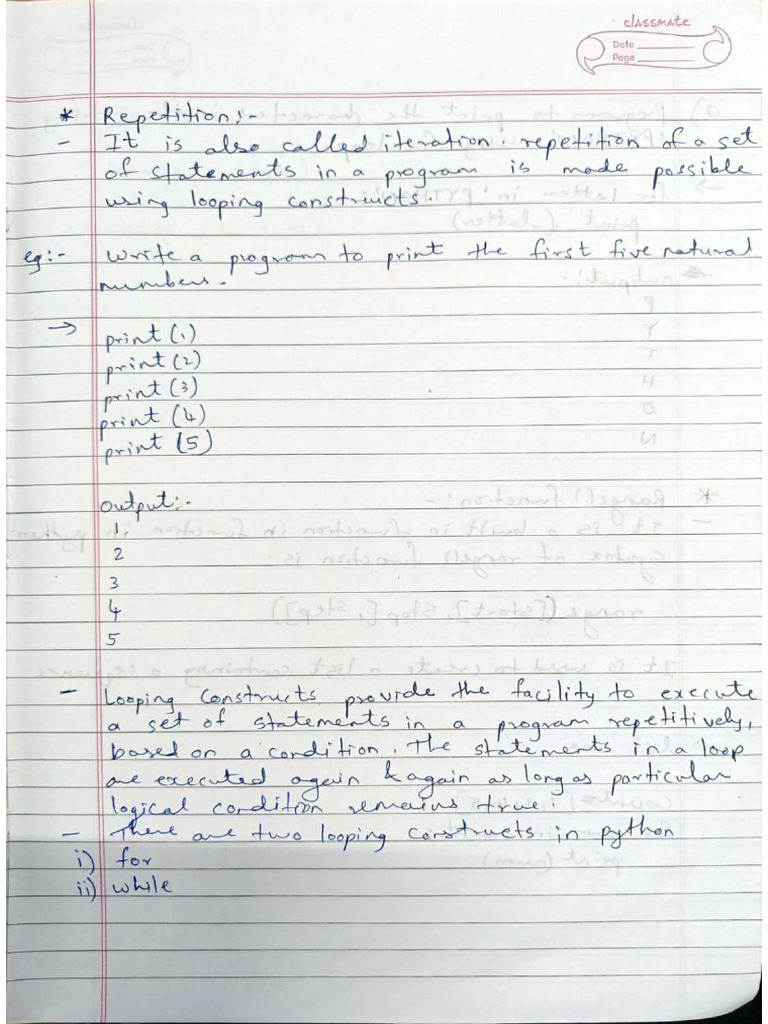 classmate
Date
Page
* Repetition:-
- It is also called iteration. repetition of a set
of statements in a program is made possible
using looping constructs.
eg:- Write a program to print the first five natural
numbers.
→ print (1)
print (2)
print (3)
print (4)
print (5)
Output:-
1
2
3
4
5
- Looping constructs provide the facility to execute
a set of statements in a program repetitively,
based on a condition. The statements in a loop
are executed again & again as long as particular
logical condition remains true.
- There are two looping constructs in python
i) for
ii) while